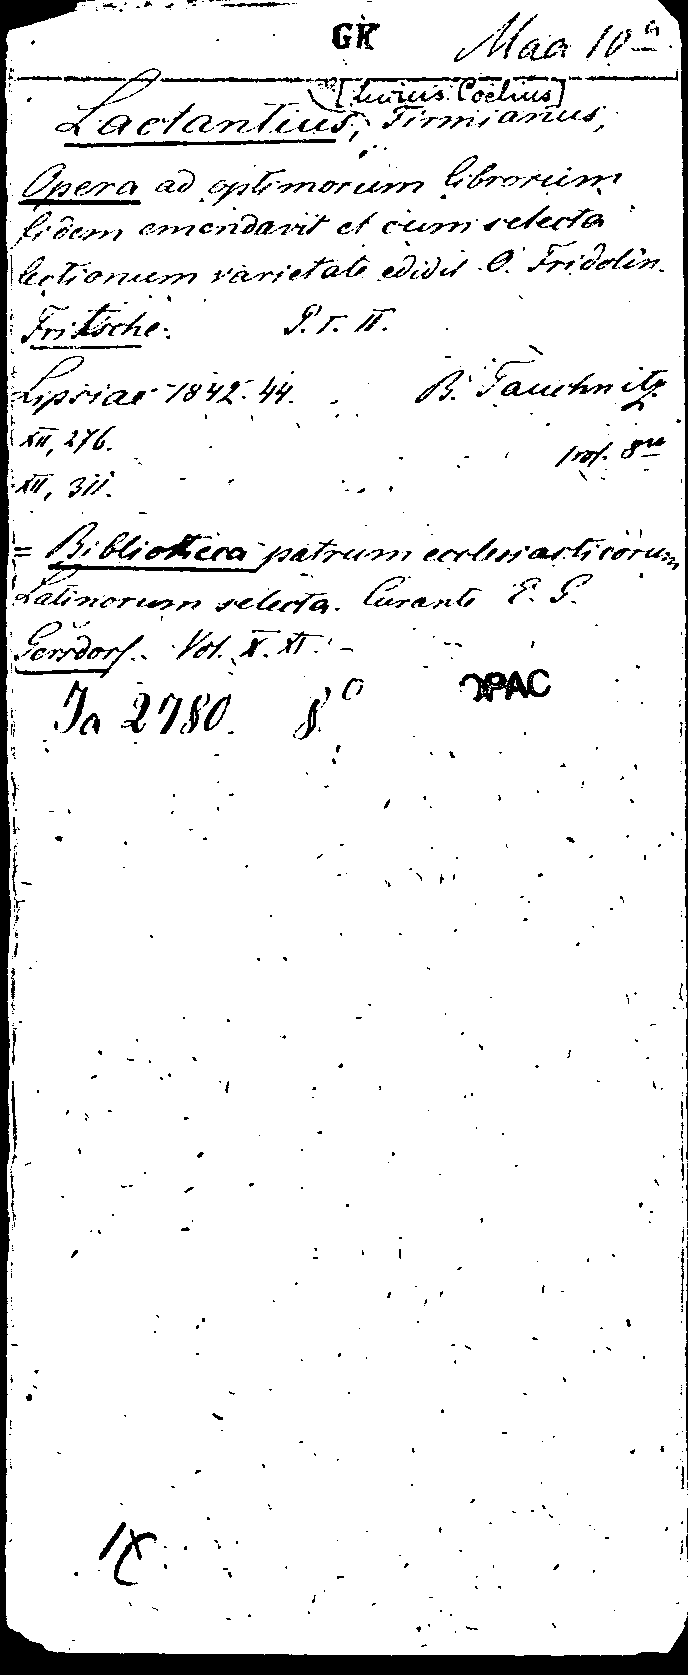 GK Maa 10a
[Lucius Coelius]
Lactantius, Firmianus,
Opera ad optimorum librorum
fidem emendavit et cum selecta
lectionum varietate edidit O. Fridolin.
Fritsche. P. I. II.
Lipsiae 1842-44. B. Tauchnitz
XII, 276. 8vo
XII, 311.
= Bibliotheca patrum ecclesiasticorum
Latinorum selecta. Curante E. G.
Gersdorf. Vol. X. XI.
Ja 2780. 8° OPAC